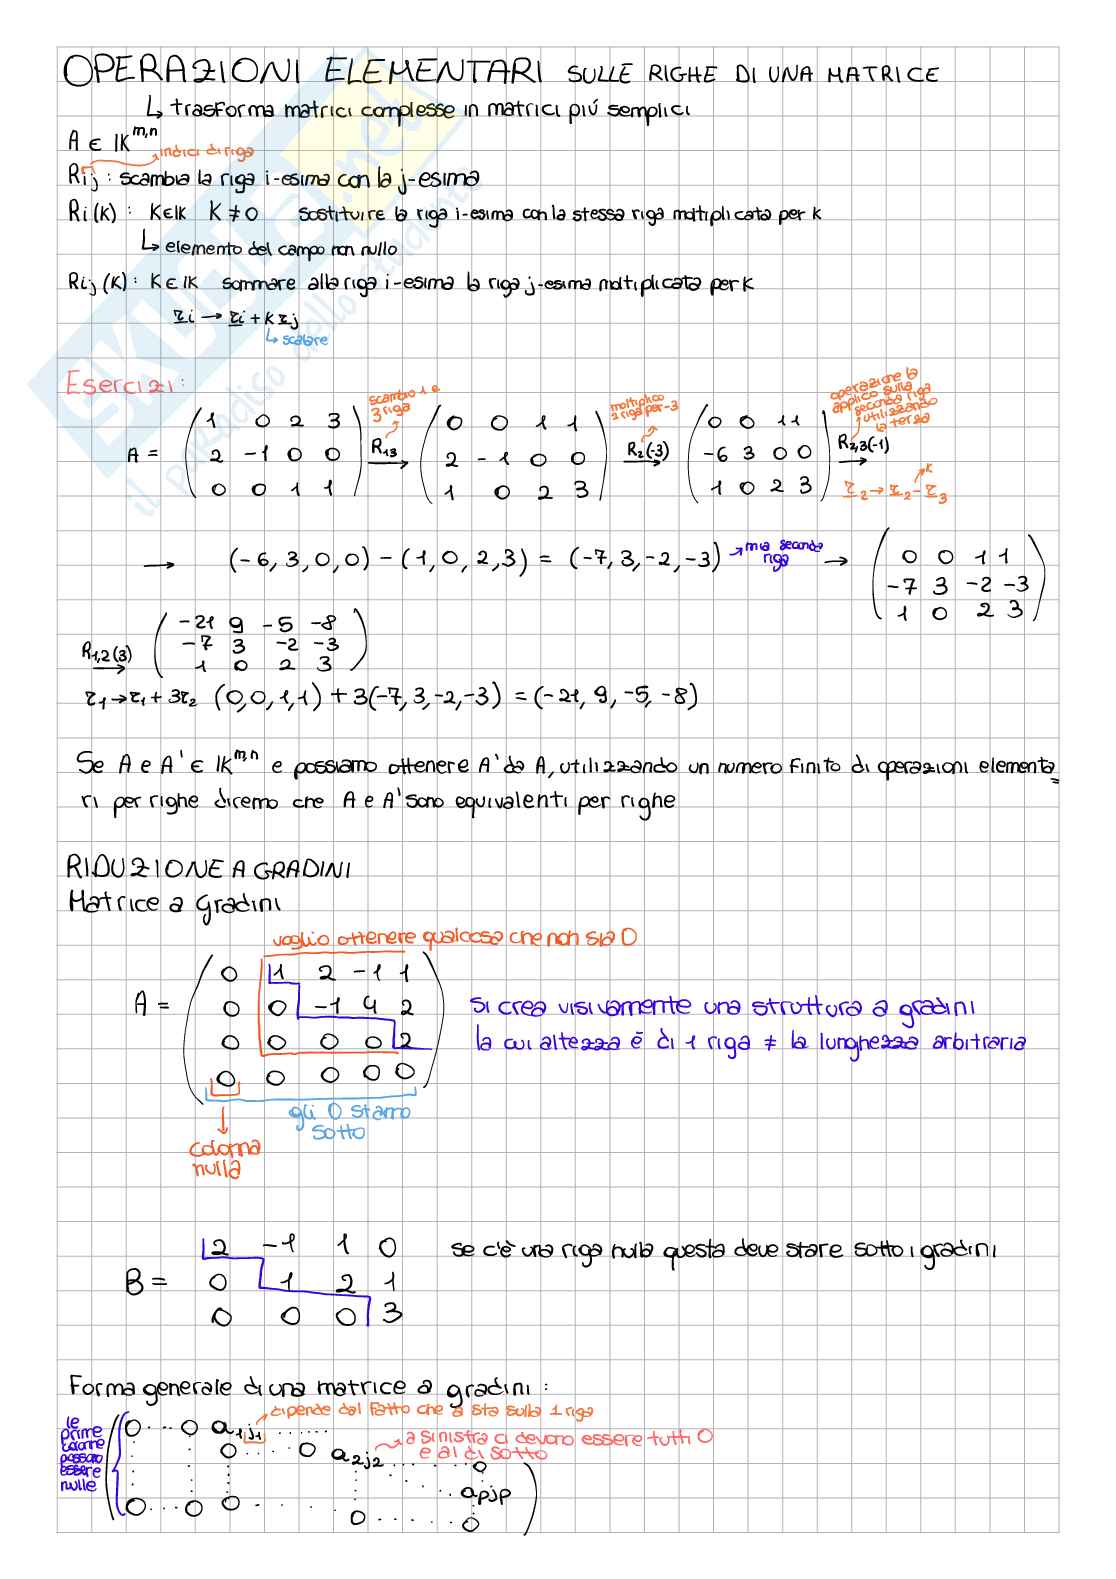 OPERAZIONI ELEMENTARI SULLE RIGHE DI UNA MATRICE
↳ trasforma matrici complesse in matrici piú semplici
A ∈ IK^m,n
→ indici di riga
Rij : scambia la riga i-esima con la j-esima
Ri(K) : K∈IK K ≠ 0 sostituire la riga i-esima con la stessa riga moltiplicata per k
↳ elemento del campo non nullo
Rij(K) : K ∈ IK sommare alla riga i-esima la riga j-esima moltiplicata per K
ri → ri + k rj
↳ scalare
Esercizi:
scambio 1 e 3 riga
moltiplico 2 riga per -3
operazione la applico sulla seconda riga utilizzando la terza
A = ( 1 0 2 3 ) ( 0 0 1 1 ) ( 0 0 1 1 )
( 2 -1 0 0 ) R13 → ( 2 -1 0 0 ) R2(-3) → ( -6 3 0 0 ) R2,3(-1) →
( 0 0 1 1 ) ( 1 0 2 3 ) ( 1 0 2 3 )
K
r2 → r2 - r3
→ (-6, 3, 0, 0) - (1, 0, 2, 3) = (-7, 3, -2, -3) → mia seconda riga → ( 0 0 1 1 )
( -7 3 -2 -3 )
( 1 0 2 3 )
( -21 9 -5 -8 )
R1,2(3) → ( -7 3 -2 -3 )
( 1 0 2 3 )
r1 → r1 + 3r2 (0, 0, 1, 1) + 3(-7, 3, -2, -3) = (-21, 9, -5, -8)
Se A e A' ∈ IK^m,n e possiamo ottenere A' da A, utilizzando un numero finito di operazioni elementa=
ri per righe diremo che A e A' sono equivalenti per righe
RIDUZIONE A GRADINI
Matrice a Gradini
voglio ottenere qualcosa che non sia 0
A = ( 0 1 2 -1 1 )
( 0 0 -1 4 2 ) si crea visivamente una struttura a gradini
( 0 0 0 0 2 ) la cui altezza è di 1 riga ≠ la lunghezza arbitraria
( 0 0 0 0 0 )
gli 0 stanno
sotto
colonna
nulla
2 -1 1 0 se c'è una riga nulla questa deve stare sotto i gradini
B = 0 1 2 1
0 0 0 3
Forma generale di una matrice a gradini :
→ dipende dal fatto che a sta sulla 1 riga
le prime colonne possono essere nulle
0 ... 0 a1j1 .......
→ a sinistra ci devono essere tutti 0
e al di sotto
0 .... 0 a2j2 ....... 0
apjp
0 ... 0 0 ....... 0 ...... 0
SKUOLA.net
il paradiso dello studente